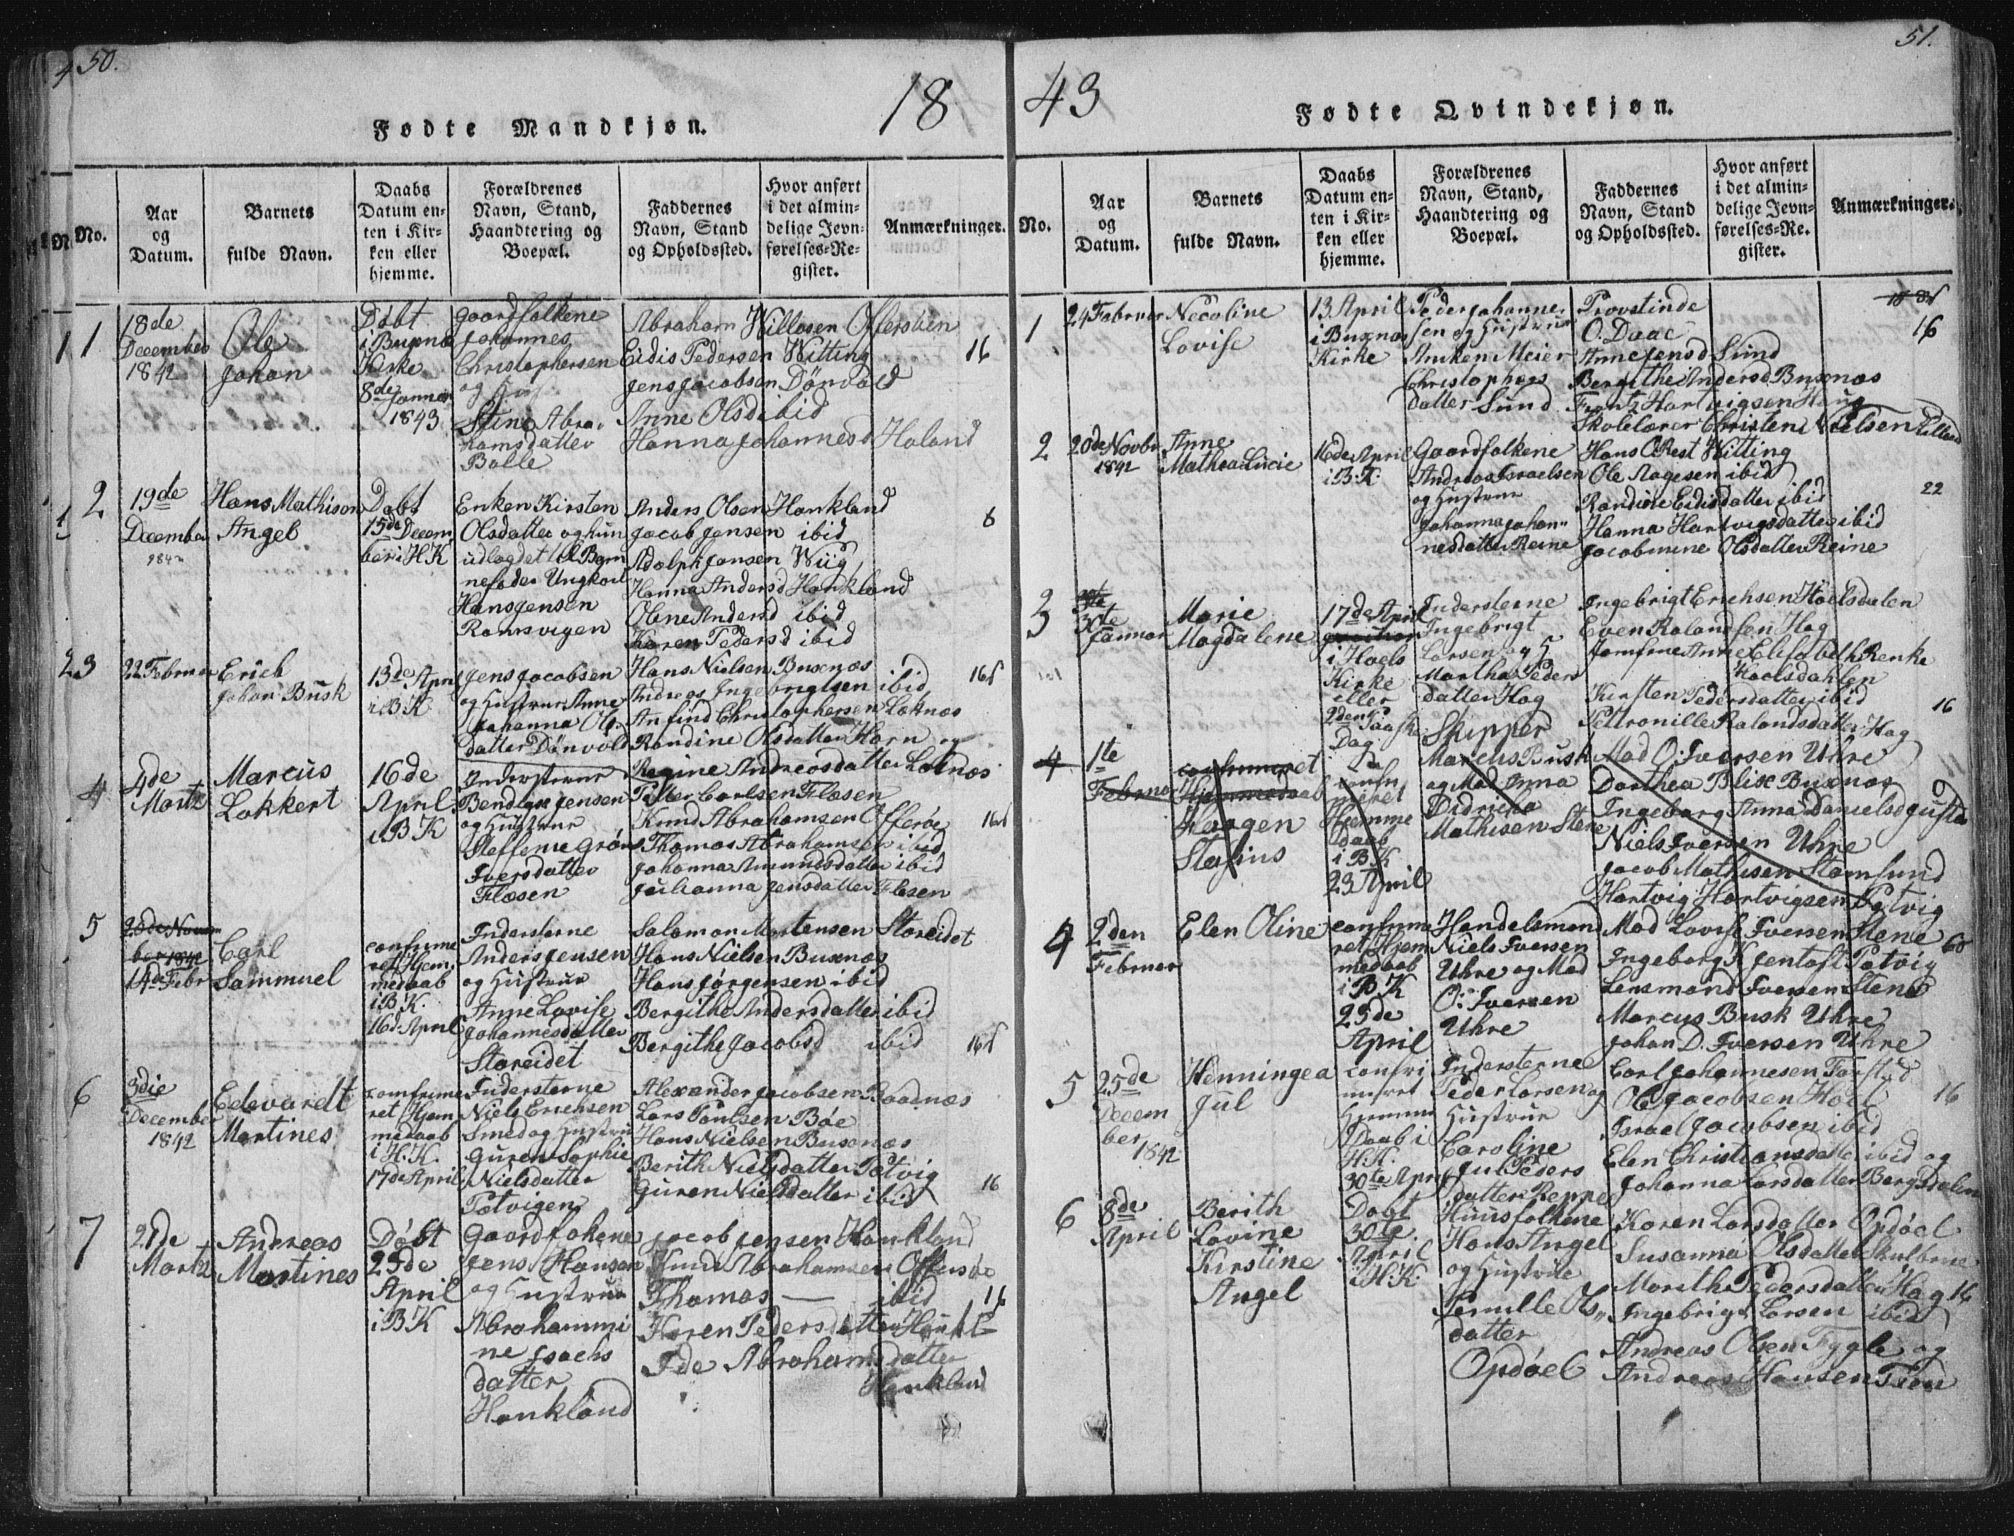 50.
18
Fødte Mandkjøn.
No.
Aar
og
Datum.
Barnets
fulde Navn.
Daabs
Datum en-
ten i Kir-
ken eller
hjemme.
Forældrenes
Navn, Stand,
Haandtering og
Boepæl.
Faddernes
Navn, Stand
og Opholdssted.
Hvor anført
i det almin-
delige Jevn-
førelses-Re-
gister.
Anmærkninger.
1
18de
December
1842
Ole
Johan
Døbt
i Buxnæs
Kirke
8de Januar
1843
Gaardfolkene
Johannes
Christophersen
og
Stine Abra-
hamsdatter
Bolle
Abraham Willasen Offersøen
Eidis Pedersen Witting
Jens Jacobsen Dønvold
Anne Olsd ibid
Hanna Johannesd Haland
16
2
19de
December
1842
Hans Mathison
Angel
Døbt
15de Decem
ber i H K
Enken Kirsten
Olsdatter og hun
udlagdet til Barn
nefader Ungkarl
Hans Jensen
Ramsvigen
Anders Olsen Hankland
Jacob Jensen ibid
Adolph Jansen Wiig
Hanna Andersd Hankland
Olene Andersd ibid
Karen Pedersd ibid
8
3
22 Februar
Erich
Johan Busk
13de April
i B K
Jens Jacobsen
og Hustrue Anne
Johanna Ols-
datter Dønvold
Hans Nielsen Buxnæs
Andreas Ingebrigtsen ibid
Anfind Christophersen Loknæs
Randine Olsdatter Horn og
Regine Andreasdatter Loknæs
16
4
4de
Martz
Marcus
Lokkert
16de
April
i B K
Indersterne
Bendix Jensen
og Hustrue
Steffene Grøn
Iversdatter
Flæsen
Petter Carlsen Flæsen
Knud Abrahamsen Offersøe
Thomas Abrahamsen ibid
Johanna Amundsdatter ibid
Julianna Jensdatter Flæsen
16
5
20de Novem
ber 1842
14de Febr
Carl
Sammuel
confirme
ret Hjem
medaab
i B K.
16d April
Inderstene
Anders Jensen
og Hustrue
Anne Lovise
Johannesdatter
Storeidet
Salomon Mortensen Storeidet
Hans Nielsen Buxnæs
Hans Jørgensen ibid
Bergithe Andersdatter ibid
Bergithe Jacobsd ibid
16
6
3die
December
1842
Edevardt
Martines
comfirme
ret Hjem
medaab
i H. K.
17de April
Indersterne
Niels Erichsen
Smed og Hustrue
Guren Sophie
Nielsdatter
Potvigen
Alexander Jacobsen Baadnæs
Lars Poulsen Bøe
Hans Nielsen Buxnæs
Berith Nielsdatter Potvig
Guren Nielsdatter ibid
16
7
21de
Martz
Andreas
Martines
Døbt
23de
April
i B K
Gaardfokene
Jens Hansen
og Hustrue
Abrahammi
ne Isachs
datter
Hankland
Jacob Jensen Hankland
Knud Abrahamsen Offersøe
Thomas — ibid
Karen Pedersdatter
Ide Abrahamsdatter
Hankland
16
51.
43
Fødte Qvindekjøn.
No.
Aar
og
Datum.
Barnets
fulde Navn.
Daabs
Datum en-
ten i Kir-
ken eller
hjemme.
Forældrenes
Navn, Stand,
Haandtering og
Boepæl.
Faddernes
Navn, Stand
og Opholdssted.
Hvor anført
i det almin-
delige Jevn-
førelses-Re-
gister.
Anmærkninger.
1
24 Februar
Necoline
Lovise
13 April
i Buxnæs
Kirke
Peder Johanne-
sen og Hustrue
Anken Meier
Christophers
datter Sund
Provstinde
O. Daae
Anne Jensd Sund
Bergithe Andersd Buxnæs
Frantz Hartvigsen Haug
Skolelærer Christen Nielsen Lilland
16
2
20de Novbr
1842
Anne
Mathea Lucie
16de April
i B. K.
Gaardfolkene
Andreas Israelsen
og Hustrue
Johanna Johan-
nesdatter Reine
Hans O Rest Witting
Ole Aagesen ibid
Randine Eidisdatter ibid
Hanna Hartvigsdatter ibid
Jacobmine Olsdatter Reine
22
3
30te
Januar
Marie
Magdalene
17de April
i Hoels
Kirke
eller
2den Paaske
Dag
Indersterne
Ingebrigt
Larsen og
Martha Peders
datter Hag
Ingebrigt Erichsen Hoelsdalen
Even Rolandsen Hag
Jomfrue Anne Elisabeth Renke
Hoelsdahlen
Kirsten Pedersdatter ibid
Pettronille Rolandsdatter Hag
16
4
1te
Februar
Haagen
Stasius
Hjemme
daab
i B K
23 April
Skipper
Marcus Busk
og Mad Anna
Didricha
Mathisen Stene
Mad O: Iversen Uhre
Dorthea Blix Buxnæs
Ingeborg Anna Danielsd
Niels Iversen Uhre
Jacob Mathisen Stamsund
Hartvig Hartvigsen Potvig
4
2den
Februar
Elen Oline
confirme
ret Hjem
medaab
i B K
23de
April
Handelsmand
Niels Iversen
Uhre og Mad
O: Iversen
Uhre
Mad Lovise Iversen Stene
Ingeborg K Jentoft Potvig
Lensmand Iversen Stene
Marcus Busk Uhre
Johan D. Iversen Uhre
60
5
25de
Decem
ber
1842
Henningea
Jul
confir
meret
Hjemme
Daab i
H. K.
30te April
Indersterne
Peder Larsen og
Hustrue
Caroline
Jul Peders
datter Reppe
Carl Johannesen Farstad
Ole Jacobsen Hoel
Israel Jacobsen ibid
Elen Christiansdatter ibid og
Johanna Larsdatter Bergsdalen
16
6
8de
April
Berith
Lovine
Kirstine
Angel
Døbt
30te
April
i H. K:
Huusfolkene
Hans Angel
og Hustrue
Pernille Ols-
datter
Opdøel
Karen Larsdatter Opdøel
Susanna Olsdatter Skulbrue
Mareth Pedersdatter Hag
Ingebrigt Larsen ibid
Andreas Olsen Fygle og
Andreas Hansen
16